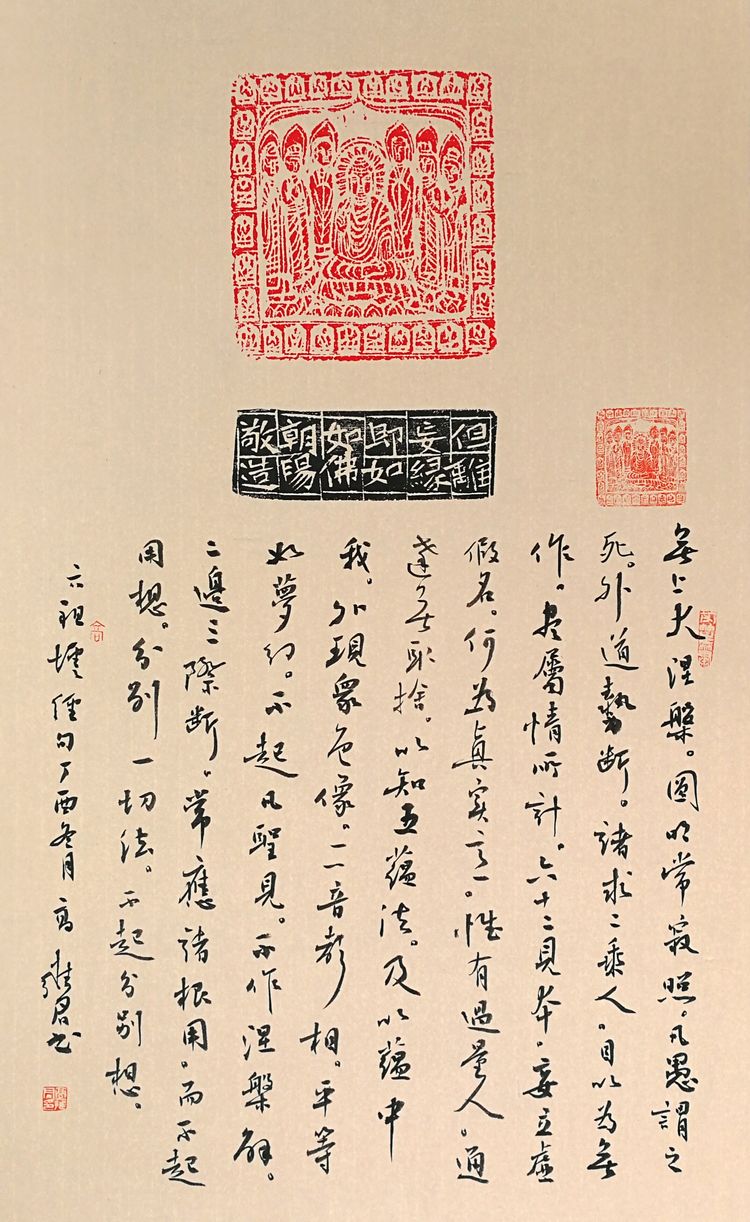 但離
妄緣
即如
如佛
朝陽
敬造
無上大涅槃。圓明常寂照。凡愚謂之
死。外道執斷。諸求二乘人。目以為無
作。盡屬情所計。六十二見本。妄立虛
假名。何為真實義。惟有過量人。通
達無取捨。以知五蘊法。及以蘊中
我。外現眾色像。一一音聲相。平等
如夢幻。不起凡聖見。不作涅槃解。
二邊三際斷。常應諸根用。而不起
用想。分別一切法。不起分別想。
六祖壇經句丁酉冬月高君书